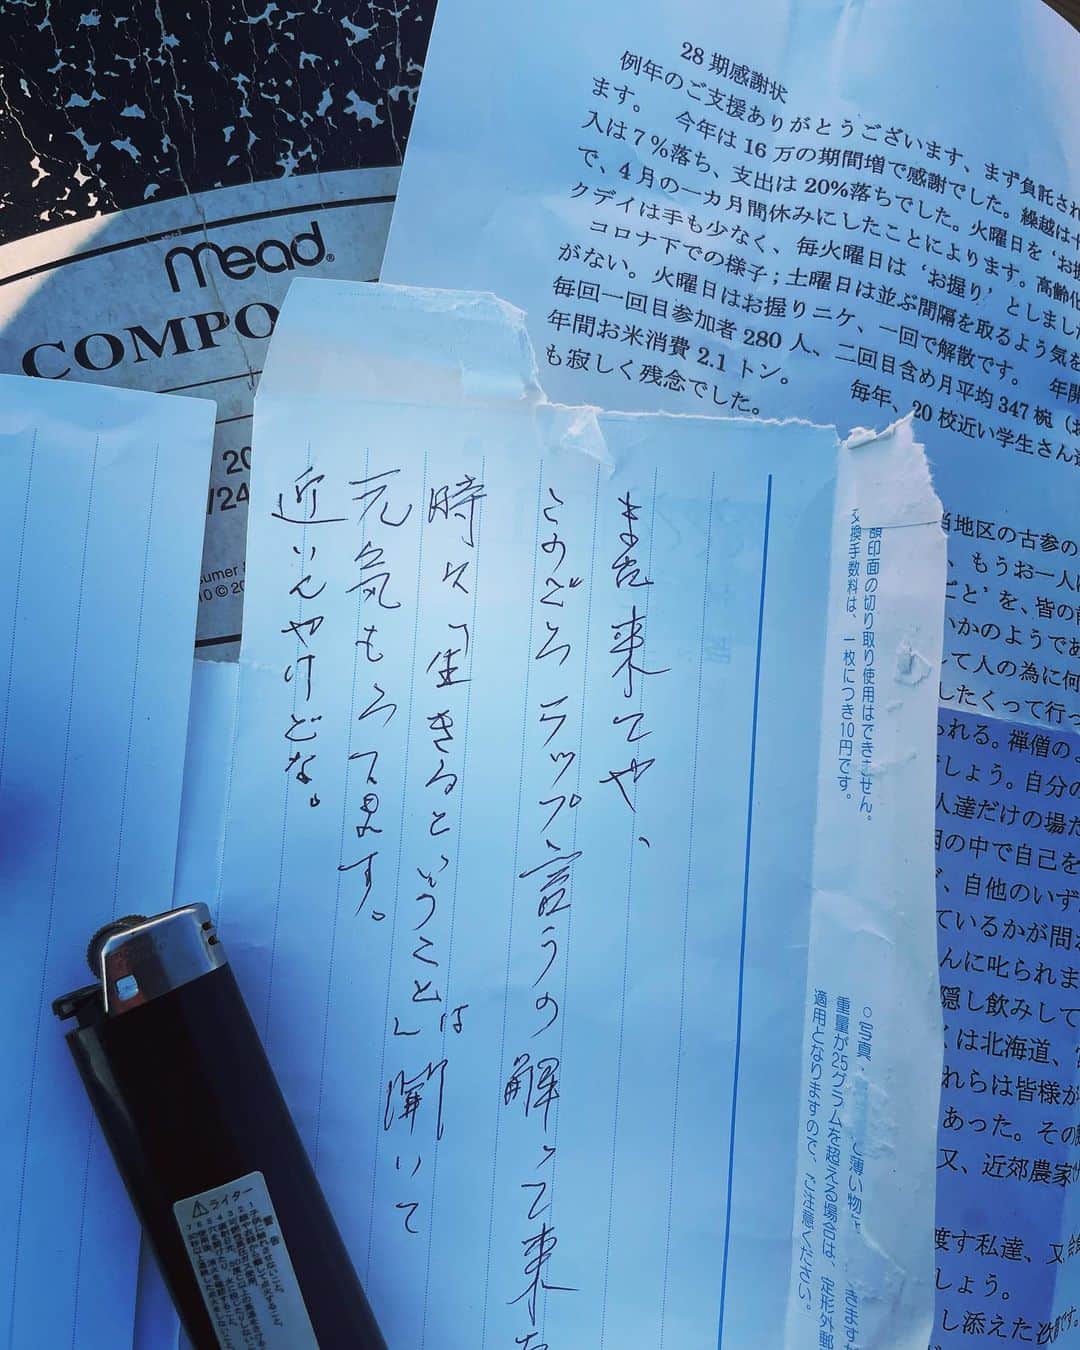 28期感謝状
例年のご支援ありがとうございます、まず負託され
ます。 今年は16万の期間増で感謝でした。繰越は十
入は7%落ち、支出は20%落ちでした。火曜日を‘お握
で、4月の一カ月間休みにしたことによります。高齢化
クデイは手も少なく、毎火曜日は‘お握り’としました
コロナ下での様子；土曜日は並ぶ間隔を取るよう気を
がない。火曜日はお握りニケ、一回で解散です。 年開
毎回一回目参加者280人、二回目含め月平均347椀（お
年間お米消費2.1トン。 毎年、20校近い学生さん達
も寂しく残念でした。
mead®
COMPO
20
/24
sumer
10©20
また来てや、
このごろラップ言うの解って来た
時々「生きるということ」は聞いて
元気もろてます。
近いんやけどな。
額印面の切り取り使用はできません。
交換手数料は、一枚につき10円です。
○写真、
と薄い物
きます
重量が25グラムを超える場合は、定形外郵
適用となりますので、ご注意ください。
当地区の古参の
、もうお一人に
ごと’を、皆の前
いかのようであ
して人の為に何
したくって行っ
られる。禅僧の
でしょう。自分の
人達だけの場だ
目の中で自己を
、自他のいず
ているかが問わ
んに叱られま
隠し飲みして
は北海道、
れらは皆様が
あった。その
又、近郊農家
渡す私達、又会食
しょう。
し添えた次第です。
⚠ライター
警告